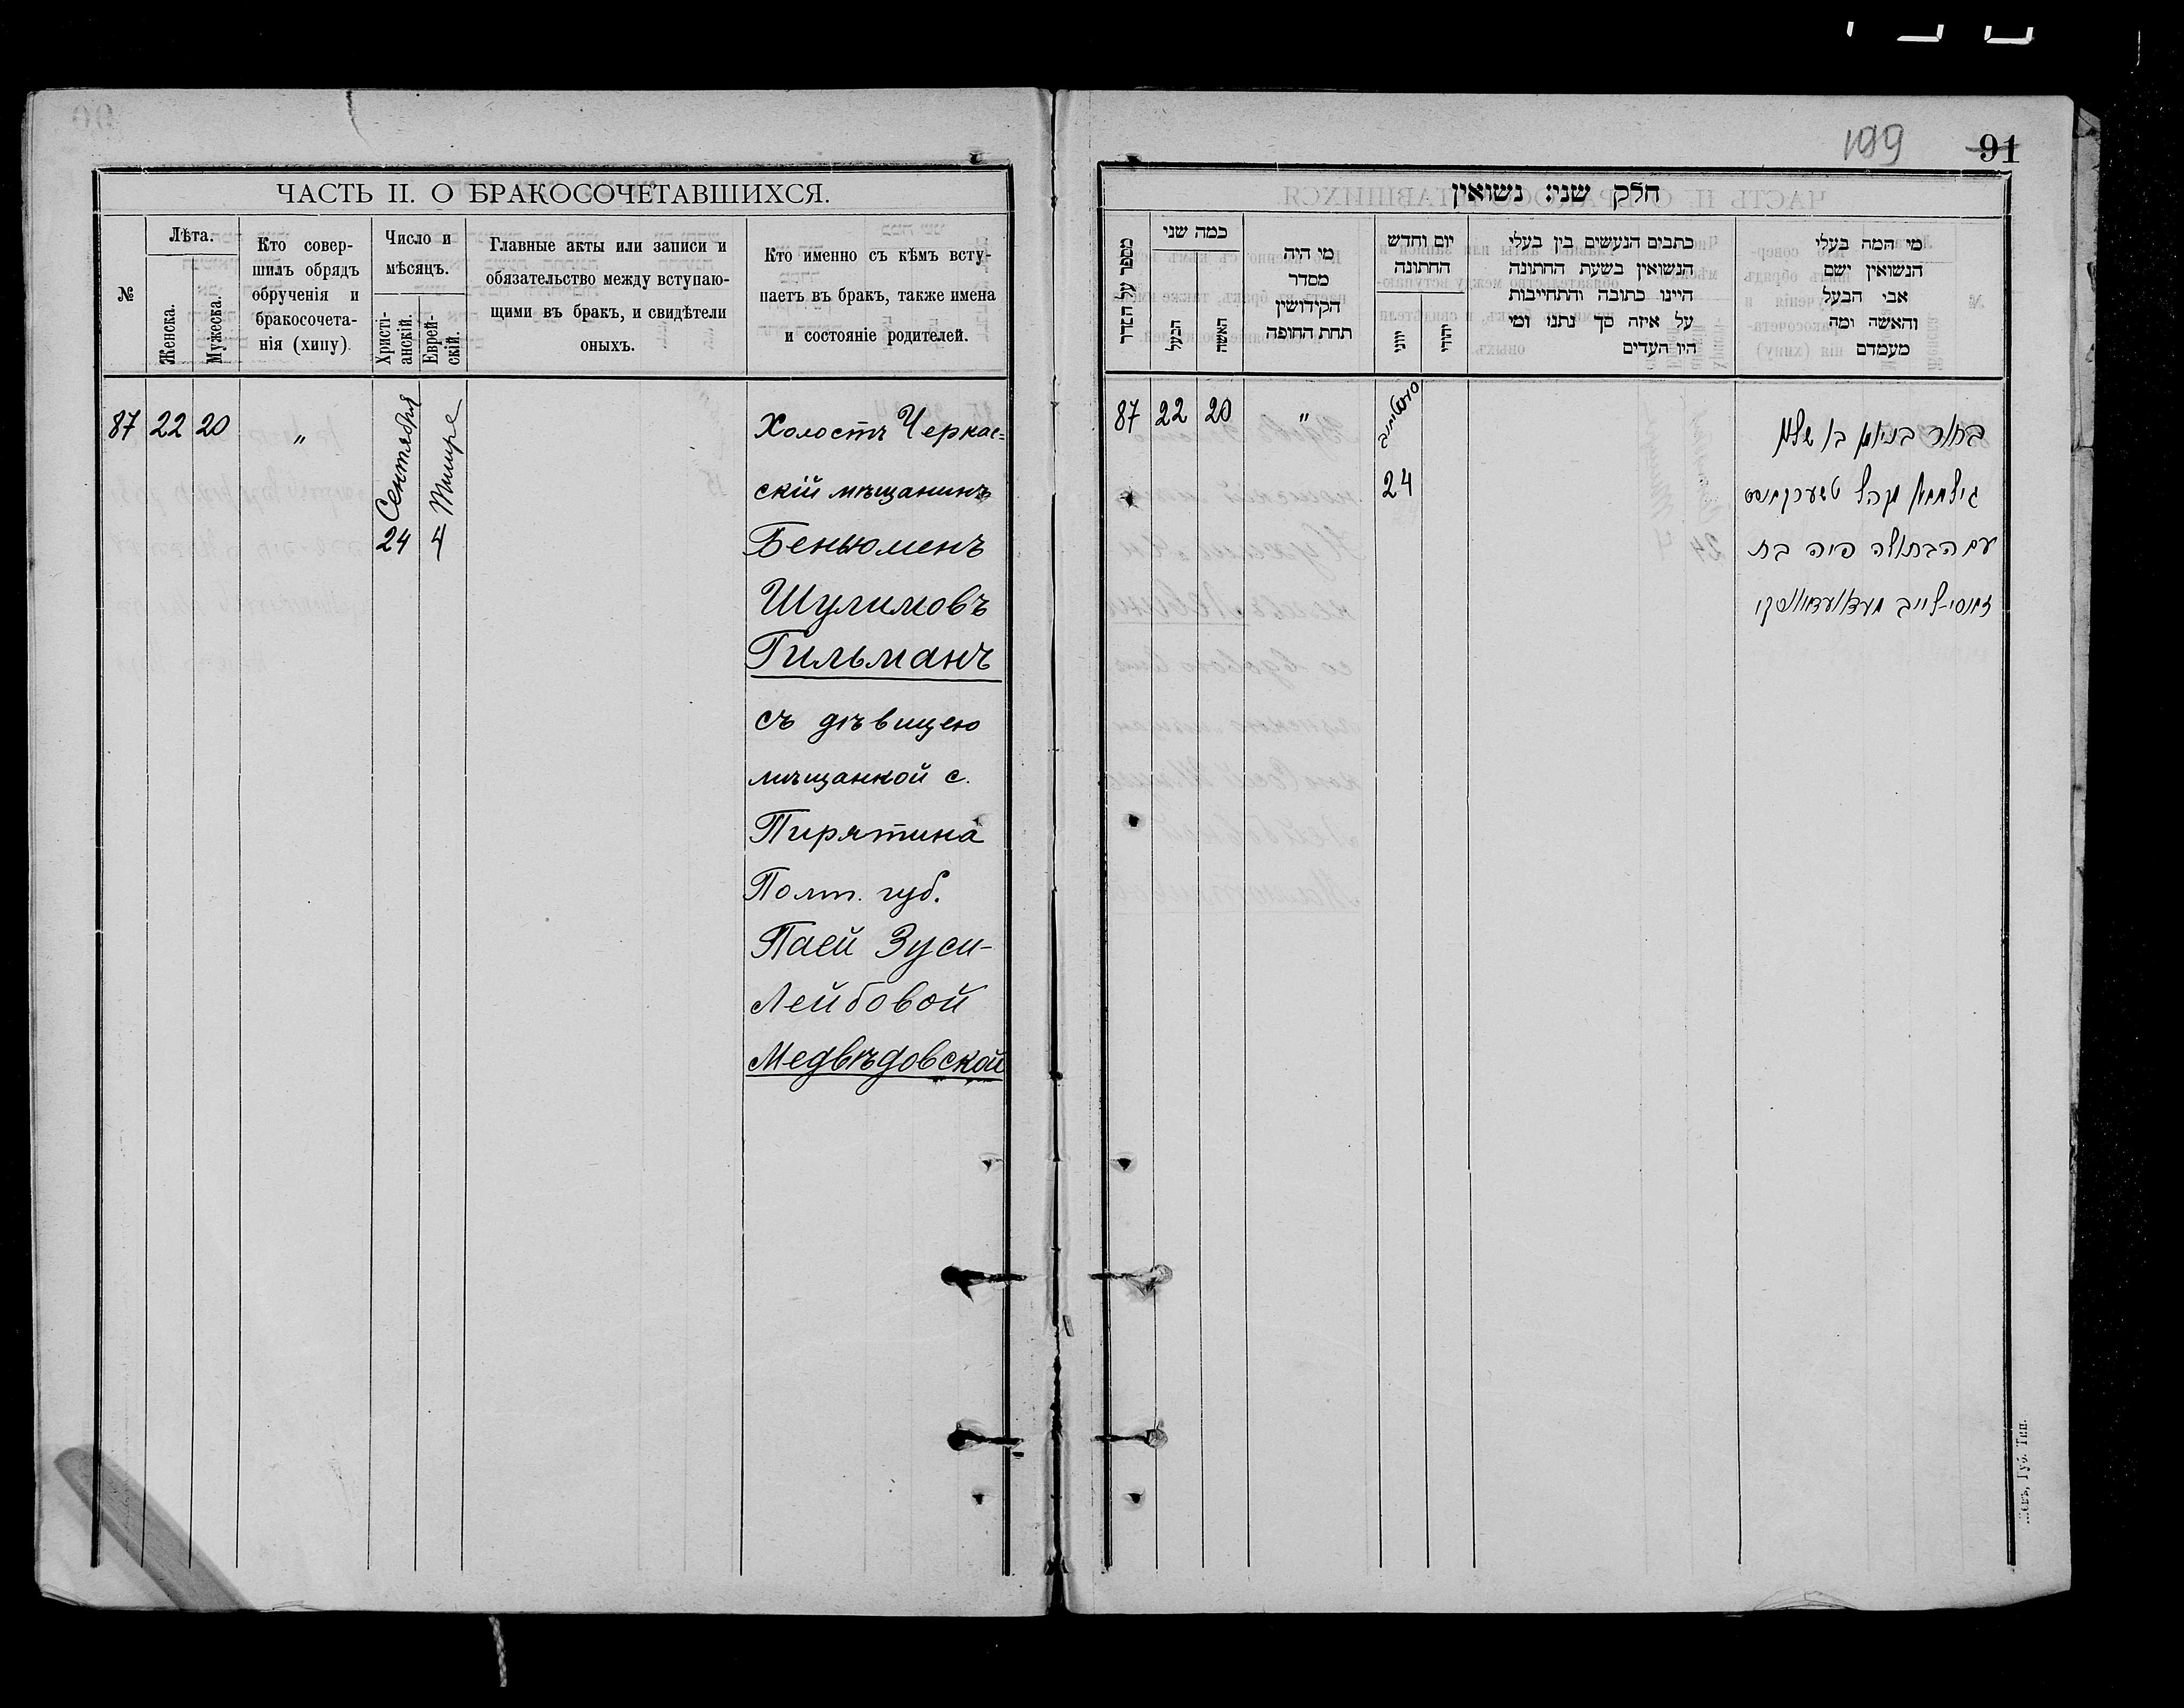 ЧАСТЬ II. О БРАКОСОЧЕТАВШИХСЯ.
№
Лѣта.
Женска.
Мужеска.
Кто совер-
шилъ обрядъ
обрученія и
бракосочета-
нія (хипу)
Число и
мѣсяцъ.
Христі-
анскій.
Еврей-
скій.
Главные акты или записи и
обязательство между вступаю-
щими въ бракъ, и свидѣтели
оныхъ.
Кто именно съ кѣмъ всту-
паетъ въ бракъ, также имена
и состояніе родителей.
87 22 20 „
Сентября
24
Тишре
4
Холостъ Черкас=
скій мѣщанинъ
Беньюменъ
Шулимовъ
Гильманъ
съ дѣвицею
мѣщанкой с.
Пирятина
Полт. губ.
Паей Зуси-
Лейбовой
Медвѣдовской
199
91
חלק שני: נשואין
מספר על הסדר
כמה שני
הבעל
האשה
מי היה
מסדר
הקידושין
תחת החופה
יום וחדש
החתונה
יוני
יהודי
כתבים הנעשים בין בעלי
הנשואין בשעת החתונה
היינו כתובה והתחייבות
על איזה סך נתנו ומי
היו העדים
מי המה בעלי
הנשואין ושם
אבי הבעל
והאשה ומה
מעמדם
87 22 20 „
24
בחור בנימן בן שלם
גילמאן מקהל טשערקאסס
עם הבתולה פיה בת
זוסי-לייב מעדוועדאווסקי
Губ. Тип.